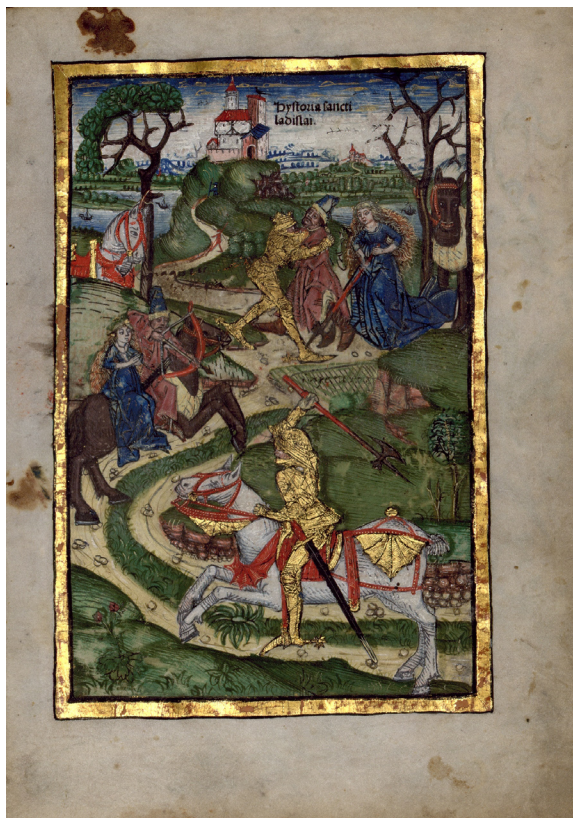 Hystoria sancti
ladislai.